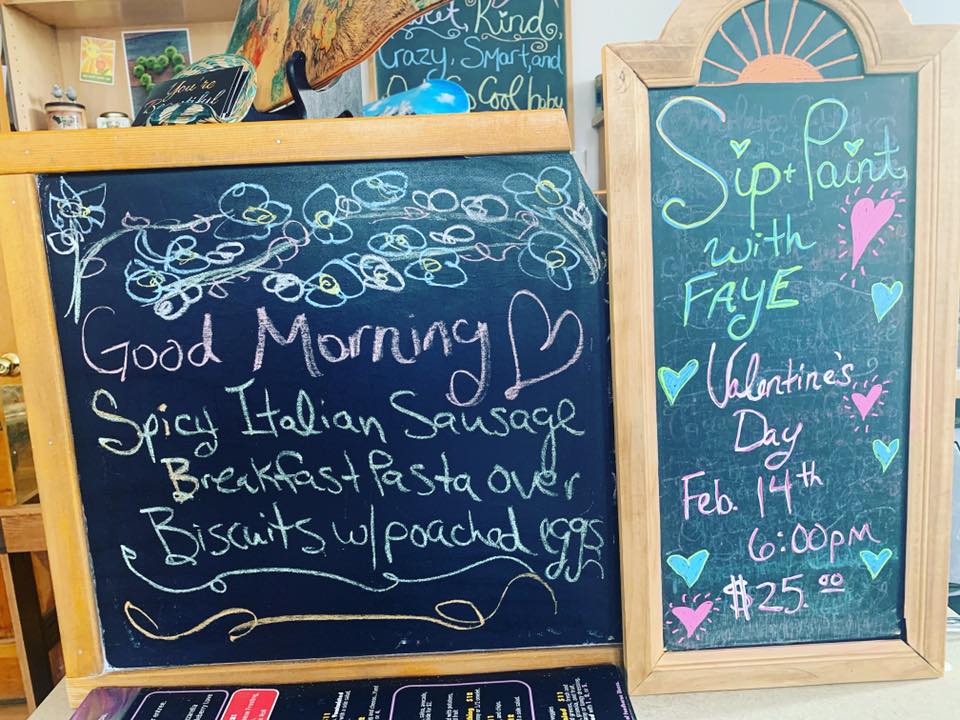 You're
Beautiful
Kind,
Crazy, Smart, and
Cool baby
Good Morning
Spicy Italian Sausage
Breakfast Pasta over
Biscuits w/ poached eggs
Sip + Paint
with
FAYE
Valentine's
Day
Feb. 14th
6:00pm
$25.00